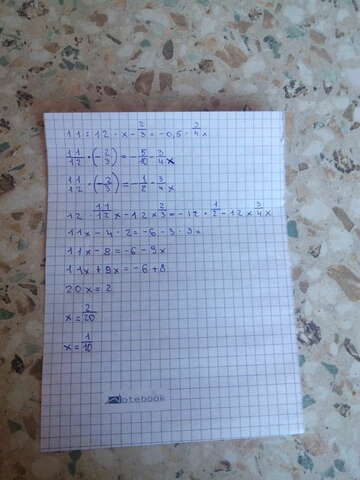 11 : 12 · x - 2/3 = -0,5 · 3/4 x
11/12 · (2/3) = -5/10 · 3/4 x
11/12 · (-2/3) = -1/2 · 3/4 x
12 · 11/12 x - 12 x 2/3 = -12 · 1/2 - 12 x 3/4 x
11x - 4 · 2 = -6 - 3 · 3x
11x - 8 = -6 - 9x
11x + 9x = -6 + 8
20x = 2
x = 2/20
x = 1/10
Notebook